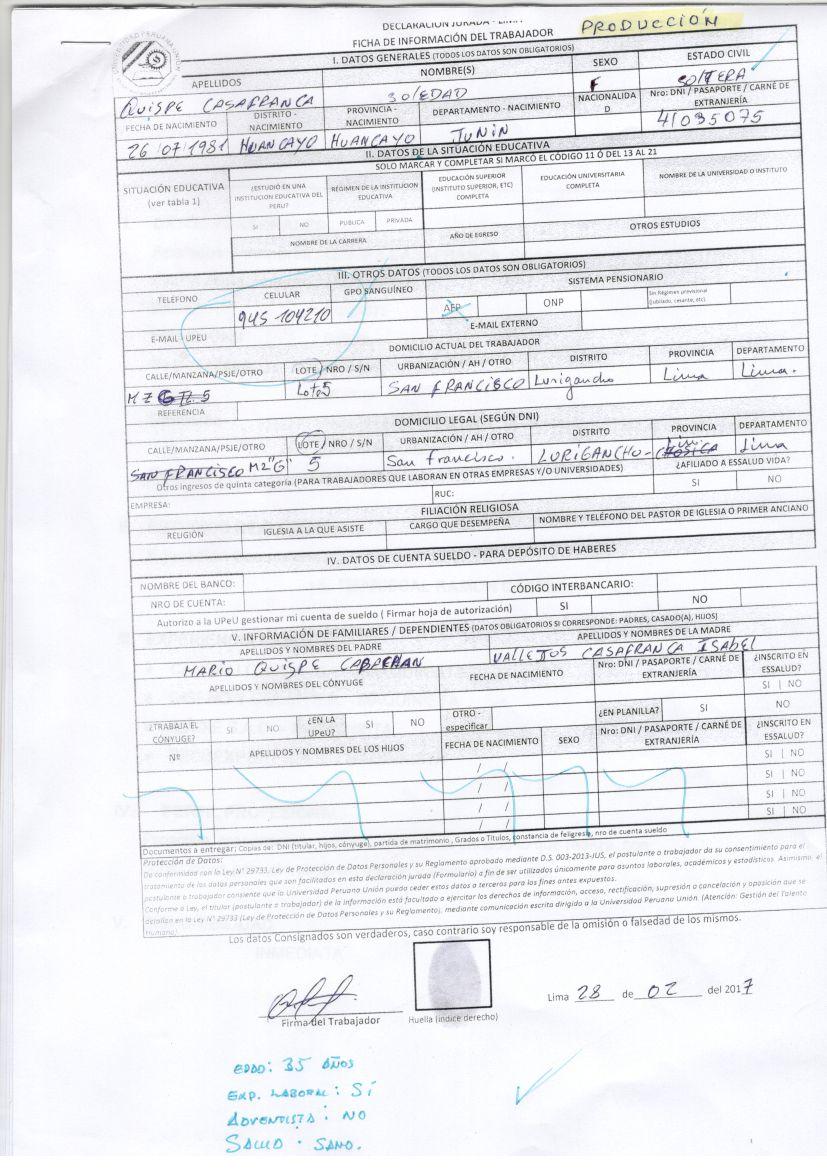 DECLARACIÓN JURADA - LIMA
PRODUCCIÓN
FICHA DE INFORMACIÓN DEL TRABAJADOR
I. DATOS GENERALES (TODOS LOS DATOS SON OBLIGATORIOS)
APELLIDOS NOMBRE(S) SEXO ESTADO CIVIL
QUISPE CASAFRANCA SOLEDAD F SOLTERA
FECHA DE NACIMIENTO DISTRITO - NACIMIENTO PROVINCIA - NACIMIENTO DEPARTAMENTO - NACIMIENTO NACIONALIDAD Nro: DNI / PASAPORTE / CARNÉ DE EXTRANJERÍA
26/07/1981 HUANCAYO HUANCAYO JUNIN 41035075
II. DATOS DE LA SITUACIÓN EDUCATIVA
SOLO MARCAR Y COMPLETAR SI MARCÓ EL CÓDIGO 11 Ó DEL 13 AL 21
SITUACIÓN EDUCATIVA (ver tabla 1) ¿ESTUDIÓ EN UNA INSTITUCION EDUCATIVA DEL PERU? RÉGIMEN DE LA INSTITUCION EDUCATIVA EDUCACIÓN SUPERIOR (INSTITUTO SUPERIOR, ETC) COMPLETA EDUCACIÓN UNIVERSITARIA COMPLETA NOMBRE DE LA UNIVERSIDAD O INSTITUTO
SI NO PUBLICA PRIVADA
NOMBRE DE LA CARRERA AÑO DE EGRESO OTROS ESTUDIOS
III. OTROS DATOS (TODOS LOS DATOS SON OBLIGATORIOS)
TELÉFONO CELULAR GPO SANGUÍNEO SISTEMA PENSIONARIO
945 104210 AFP ONP Sin Régimen previsional (jubilado, cesante, etc)
E-MAIL - UPEU E-MAIL EXTERNO
DOMICILIO ACTUAL DEL TRABAJADOR
CALLE/MANZANA/PSJE/OTRO LOTE / NRO / S/N URBANIZACIÓN / AH / OTRO DISTRITO PROVINCIA DEPARTAMENTO
MZ G Lote 5 SAN FRANCISCO Lurigancho Lima Lima.
REFERENCIA
DOMICILIO LEGAL (SEGÚN DNI)
CALLE/MANZANA/PSJE/OTRO LOTE / NRO / S/N URBANIZACIÓN / AH / OTRO DISTRITO PROVINCIA DEPARTAMENTO
SAN FRANCISCO MZ "G" 5 San Francisco. LURIGANCHO - CHOSICA Lima Lima
Otros ingresos de quinta categoría (PARA TRABAJADORES QUE LABORAN EN OTRAS EMPRESAS Y/O UNIVERSIDADES) ¿AFILIADO A ESSALUD VIDA?
EMPRESA: RUC: SI NO
FILIACIÓN RELIGIOSA
RELIGIÓN IGLESIA A LA QUE ASISTE CARGO QUE DESEMPEÑA NOMBRE Y TELÉFONO DEL PASTOR DE IGLESIA O PRIMER ANCIANO
IV. DATOS DE CUENTA SUELDO - PARA DEPÓSITO DE HABERES
NOMBRE DEL BANCO: CÓDIGO INTERBANCARIO:
NRO DE CUENTA:
Autorizo a la UPeU gestionar mi cuenta de sueldo ( Firmar hoja de autorización) SI NO
V. INFORMACIÓN DE FAMILIARES / DEPENDIENTES (DATOS OBLIGATORIOS SI CORRESPONDE: PADRES, CASADO(A), HIJOS)
APELLIDOS Y NOMBRES DEL PADRE APELLIDOS Y NOMBRES DE LA MADRE
MARIO QUISPE VALLEJOS CASAFRANCA ISABEL
APELLIDOS Y NOMBRES DEL CÓNYUGE FECHA DE NACIMIENTO Nro: DNI / PASAPORTE / CARNÉ DE EXTRANJERÍA ¿INSCRITO EN ESSALUD?
SI | NO
¿TRABAJA EL CÓNYUGE? SI NO ¿EN LA UPeU? SI NO OTRO - especificar ¿EN PLANILLA? SI NO
Nº APELLIDOS Y NOMBRES DEL LOS HIJOS FECHA DE NACIMIENTO SEXO Nro: DNI / PASAPORTE / CARNÉ DE EXTRANJERÍA ¿INSCRITO EN ESSALUD?
/ / SI | NO
/ / SI | NO
/ / SI | NO
/ / SI | NO
Documentos a entregar: Copias de: DNI (titular, hijos, cónyuge), partida de matrimonio , Grados o Títulos, constancia de feligresía, nro de cuenta sueldo
Protección de Datos:
De conformidad con la Ley N° 29733, Ley de Protección de Datos Personales y su Reglamento aprobado mediante D.S. 003-2013-JUS, el postulante o trabajador da su consentimiento para el
tratamiento de los datos personales que son facilitados en esta declaración jurada (Formulario) a fin de ser utilizados únicamente para asuntos laborales, académicos y estadísticos. Asimismo, el
postulante o trabajador consiente que la Universidad Peruana Unión pueda ceder estos datos a terceros para los fines antes expuestos.
Conforme a Ley, el titular (postulante o trabajador) de la información está facultado a ejercitar los derechos de información, acceso, rectificación, supresión o cancelación y oposición que se
detallan en la Ley N° 29733 (Ley de Protección de Datos Personales y su Reglamento), mediante comunicación escrita dirigido a la Universidad Peruana Unión. (Atención: Gestión del Talento
Humano)
Los datos Consignados son verdaderos, caso contrario soy responsable de la omisión o falsedad de los mismos.
Firma del Trabajador Huella (índice derecho) Lima 28 de 02 del 2017
EDAD: 35 AÑOS
EXP. LABORAL: SÍ
ADVENTISTA: NO
SALUD: SANO.